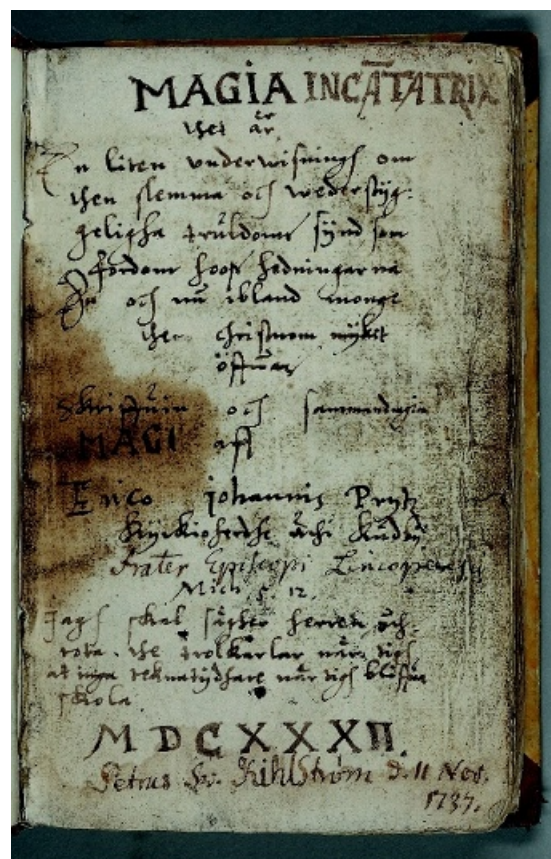 MAGIA INCĀTATRIX
thet är
En liten underwisningh om
then slemma och wederstyg:
geligha trùldoms synd som
fordom hoos hedningarna
och nù ibland monge
the christnom myket
öffuas
och
MAGI aff
Erico Johannis Prytz
Kyrkioherde
Frater Episcopi Lincopensis
Mich. 5. 12.
Jagh skal sägher herren uth
rota the trolkarlar när tigh
at inga teknatydhare när tigh bliffua
skola.
MDCXXXII.
Petrus Kihlström d. 11 Nov.
1737.